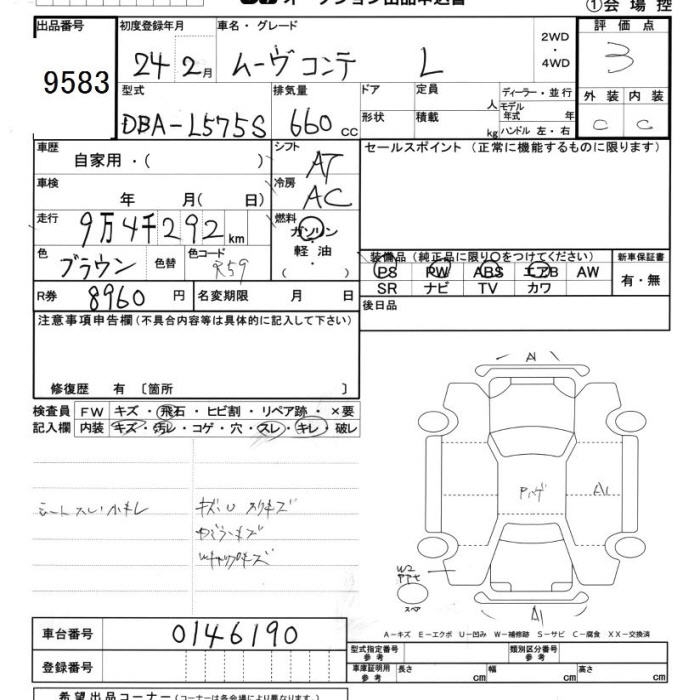 オークション出品申込書 ①会場控
出品番号 初度登録年月 車名・グレード 2WD・4WD 評価点
9583 24年2月 ムーヴコンテ L 3
型式 排気量 ドア 定員 人 ディーラー・並行 外装 内装
DBA-L575S 660cc 形状 積載 kg モデル年式 年 ハンドル 左・右 C C
車歴 自家用・( ) シフト AT セールスポイント(正常に機能するものに限ります)
車検 年 月( 日) 冷房 AC
走行 9万4千292km 燃料 ガソリン・軽油・( )
色 ブラウン 色替 色コード R59 装備品(純正品に限り○をつけてください) 新車保証書
PS PW ABS エアB AW 有・無
R券 8960円 名変期限 月 日 SR ナビ TV カワ
注意事項申告欄(不具合内容等は具体的に記入して下さい) 後日品
修復歴 有 〔箇所 〕
検査員 FW キズ・飛石・ヒビ割・リペア跡・×要
記入欄 内装 キズ・汚レ・コゲ・穴・スレ・キレ・破レ
シートスレ小キレ
A1
A1
W2
スペア
A1
A-キズ E-エクボ U-凹み W-補修跡 S-サビ C-腐食 XX-交換済
車台番号 0146190 型式指定番号 参考 類別区分番号 参考
登録番号 車庫証明用 参考 長さ cm 幅 cm 高さ cm
希望出品コーナー(コーナーは各会場により異なります。)